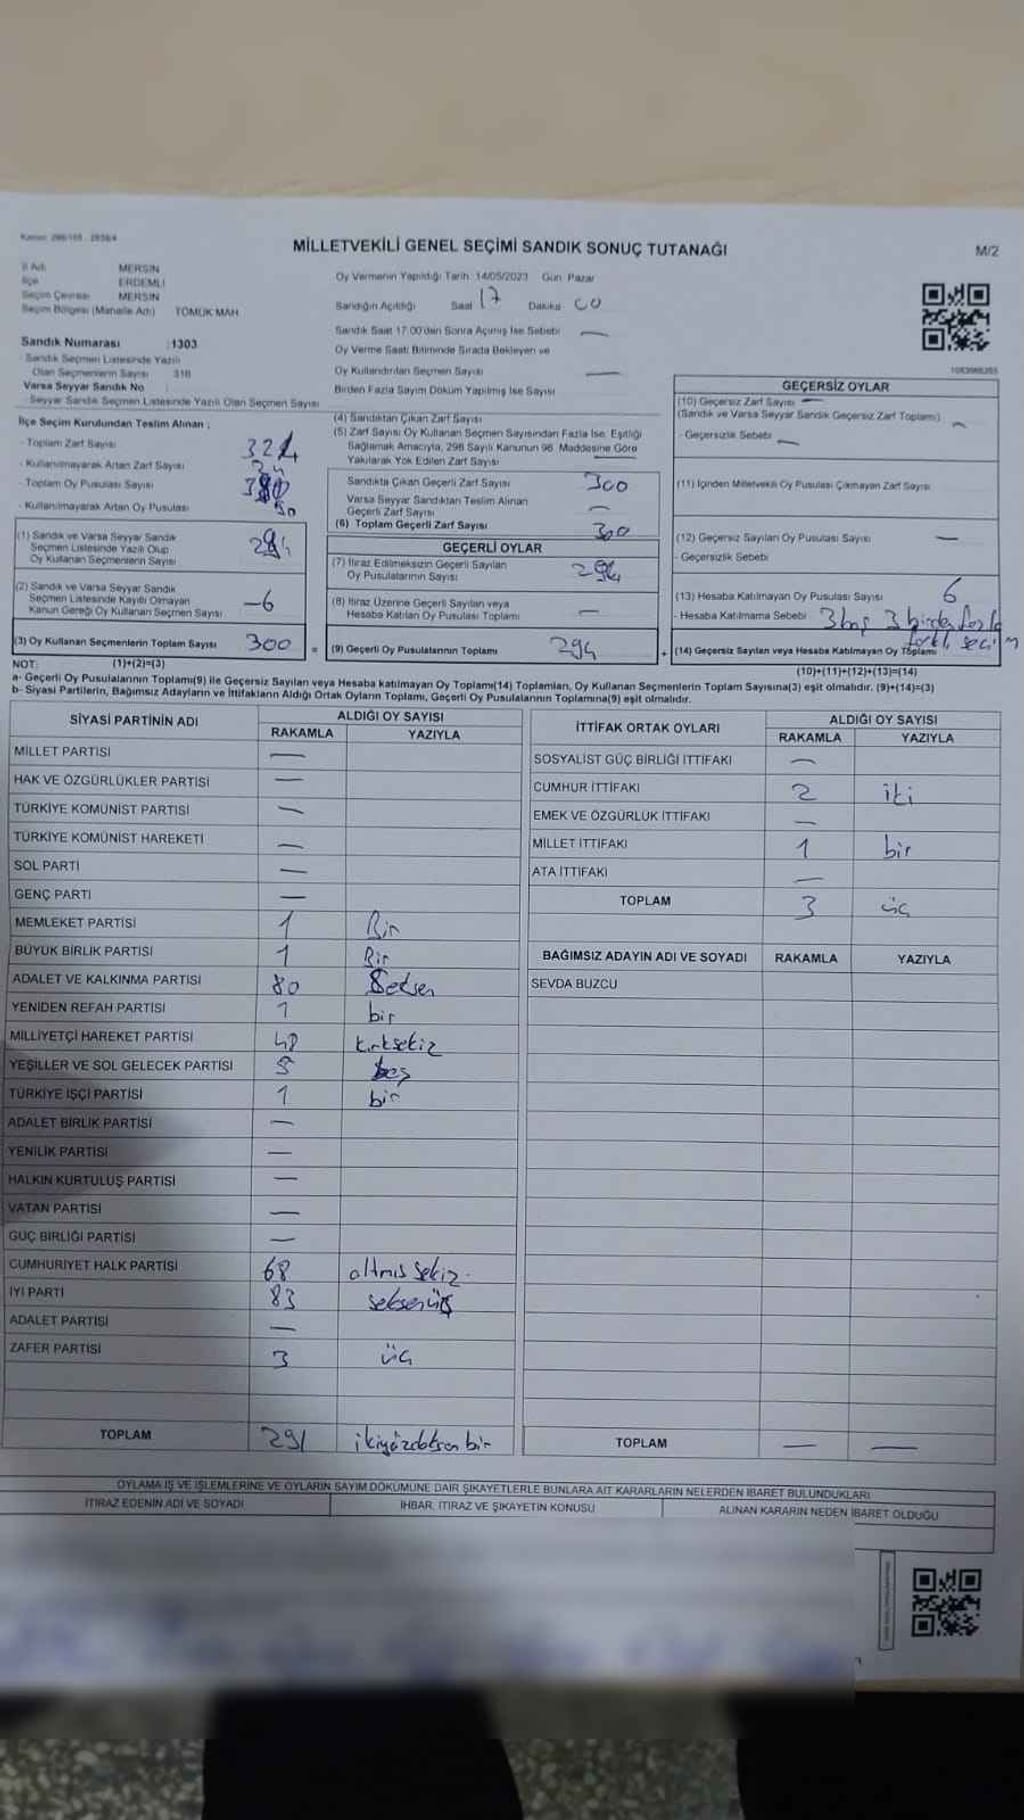 MİLLETVEKİLİ GENEL SEÇİMİ SANDIK SONUÇ TUTANAĞI
M/2
İl Adı MERSİN
İlçe ERDEMLİ
Seçim Çevresi MERSİN
Seçim Bölgesi (Mahalle Adı) TÖMÜK MAH
Sandık Numarası :1303
Sandık Seçmen Listesinde Yazılı
Olan Seçmenlerin Sayısı 318
Varsa Seyyar Sandık No
Seyyar Sandık Seçmen Listesinde Yazılı Olan Seçmen Sayısı
Oy Vermenin Yapıldığı Tarih: 14/05/2023 Gün: Pazar
Sandığın Açıldığı Saat 17 Dakika 00
Sandık Saat 17:00'dan Sonra Açılmış İse Sebebi —
Oy Verme Saati Bitiminde Sırada Bekleyen ve
Oy Kullandırılan Seçmen Sayısı —
Birden Fazla Sayım Döküm Yapılmış İse Sayısı
İlçe Seçim Kurulundan Teslim Alınan ;
- Toplam Zarf Sayısı
- Kullanılmayarak Artan Zarf Sayısı
- Toplam Oy Pusulası Sayısı
- Kullanılmayarak Artan Oy Pusulası
(1) Sandık ve Varsa Seyyar Sandık
Seçmen Listesinde Yazılı Olup
Oy Kullanan Seçmenlerin Sayısı
(2) Sandık ve Varsa Seyyar Sandık
Seçmen Listesinde Kayıtlı Olmayan
Kanun Gereği Oy Kullanan Seçmen Sayısı 6
(3) Oy Kullanan Seçmenlerin Toplam Sayısı 300 =
(4) Sandıktan Çıkan Zarf Sayısı
(5) Zarf Sayısı Oy Kullanan Seçmen Sayısından Fazla İse, Eşitliği
Sağlamak Amacıyla, 298 Sayılı Kanunun 98. Maddesine Göre
Yakılarak Yok Edilen Zarf Sayısı
Sandıkta Çıkan Geçerli Zarf Sayısı 300
Varsa Seyyar Sandıktan Teslim Alınan
Geçerli Zarf Sayısı —
(6) Toplam Geçerli Zarf Sayısı 300
GEÇERLİ OYLAR
(7) İtiraz Edilmeksizin Geçerli Sayılan
Oy Pusulalarının Sayısı 294
(8) İtiraz Üzerine Geçerli Sayılan veya
Hesaba Katılan Oy Pusulası Toplamı —
(9) Geçerli Oy Pusulalarının Toplamı 294 +
GEÇERSİZ OYLAR
(10) Geçersiz Zarf Sayısı —
(Sandık ve Varsa Seyyar Sandık Geçersiz Zarf Toplamı)
- Geçersizlik Sebebi —
(11) İçinden Milletvekili Oy Pusulası Çıkmayan Zarf Sayısı
(12) Geçersiz Sayılan Oy Pusulası Sayısı —
- Geçersizlik Sebebi
(13) Hesaba Katılmayan Oy Pusulası Sayısı 6
- Hesaba Katılmama Sebebi 3 boş 3 birden fazla
farklı seçim
(14) Geçersiz Sayılan veya Hesaba Katılmayan Oy Toplamı
NOT: (1)+(2)=(3)
(10)+(11)+(12)+(13)=(14)
a- Geçerli Oy Pusulalarının Toplamı(9) ile Geçersiz Sayılan veya Hesaba katılmayan Oy Toplamı(14) Toplamları, Oy Kullanan Seçmenlerin Toplam Sayısına(3) eşit olmalıdır. (9)+(14)=(3)
b- Siyasi Partilerin, Bağımsız Adayların ve İttifakların Aldığı Ortak Oyların Toplamı, Geçerli Oy Pusulalarının Toplamına(9) eşit olmalıdır.
SİYASİ PARTİNİN ADI ALDIĞI OY SAYISI
RAKAMLA YAZIYLA
MİLLET PARTİSİ —
HAK VE ÖZGÜRLÜKLER PARTİSİ —
TÜRKİYE KOMÜNİST PARTİSİ —
TÜRKİYE KOMÜNİST HAREKETİ —
SOL PARTİ —
GENÇ PARTİ —
MEMLEKET PARTİSİ 1 Bir
BÜYÜK BİRLİK PARTİSİ 1 Bir
ADALET VE KALKINMA PARTİSİ 80 Seksen
YENİDEN REFAH PARTİSİ 1 bir
MİLLİYETÇİ HAREKET PARTİSİ 48 kırksekiz
YEŞİLLER VE SOL GELECEK PARTİSİ 5 beş
TÜRKİYE İŞÇİ PARTİSİ 1 bir
ADALET BİRLİK PARTİSİ —
YENİLİK PARTİSİ —
HALKIN KURTULUŞ PARTİSİ —
VATAN PARTİSİ —
GÜÇ BİRLİĞİ PARTİSİ —
CUMHURİYET HALK PARTİSİ 68 altmış sekiz
İYİ PARTİ 83 seksenüç
ADALET PARTİSİ —
ZAFER PARTİSİ 3 üç
TOPLAM 291 ikiyüzdoksan bir
İTTİFAK ORTAK OYLARI ALDIĞI OY SAYISI
RAKAMLA YAZIYLA
SOSYALİST GÜÇ BİRLİĞİ İTTİFAKI —
CUMHUR İTTİFAKI 2 iki
EMEK VE ÖZGÜRLÜK İTTİFAKI —
MİLLET İTTİFAKI 1 bir
ATA İTTİFAKI —
TOPLAM 3 üç
BAĞIMSIZ ADAYIN ADI VE SOYADI RAKAMLA YAZIYLA
SEVDA BUZCU
TOPLAM — —
OYLAMA İŞ VE İŞLEMLERİNE VE OYLARIN SAYIM DÖKÜMÜNE DAİR ŞİKAYETLERLE BUNLARA AİT KARARLARIN NELERDEN İBARET BULUNDUKLARI
İTİRAZ EDENİN ADI VE SOYADI İHBAR, İTİRAZ VE ŞİKAYETİN KONUSU ALINAN KARARIN NEDEN İBARET OLDUĞU